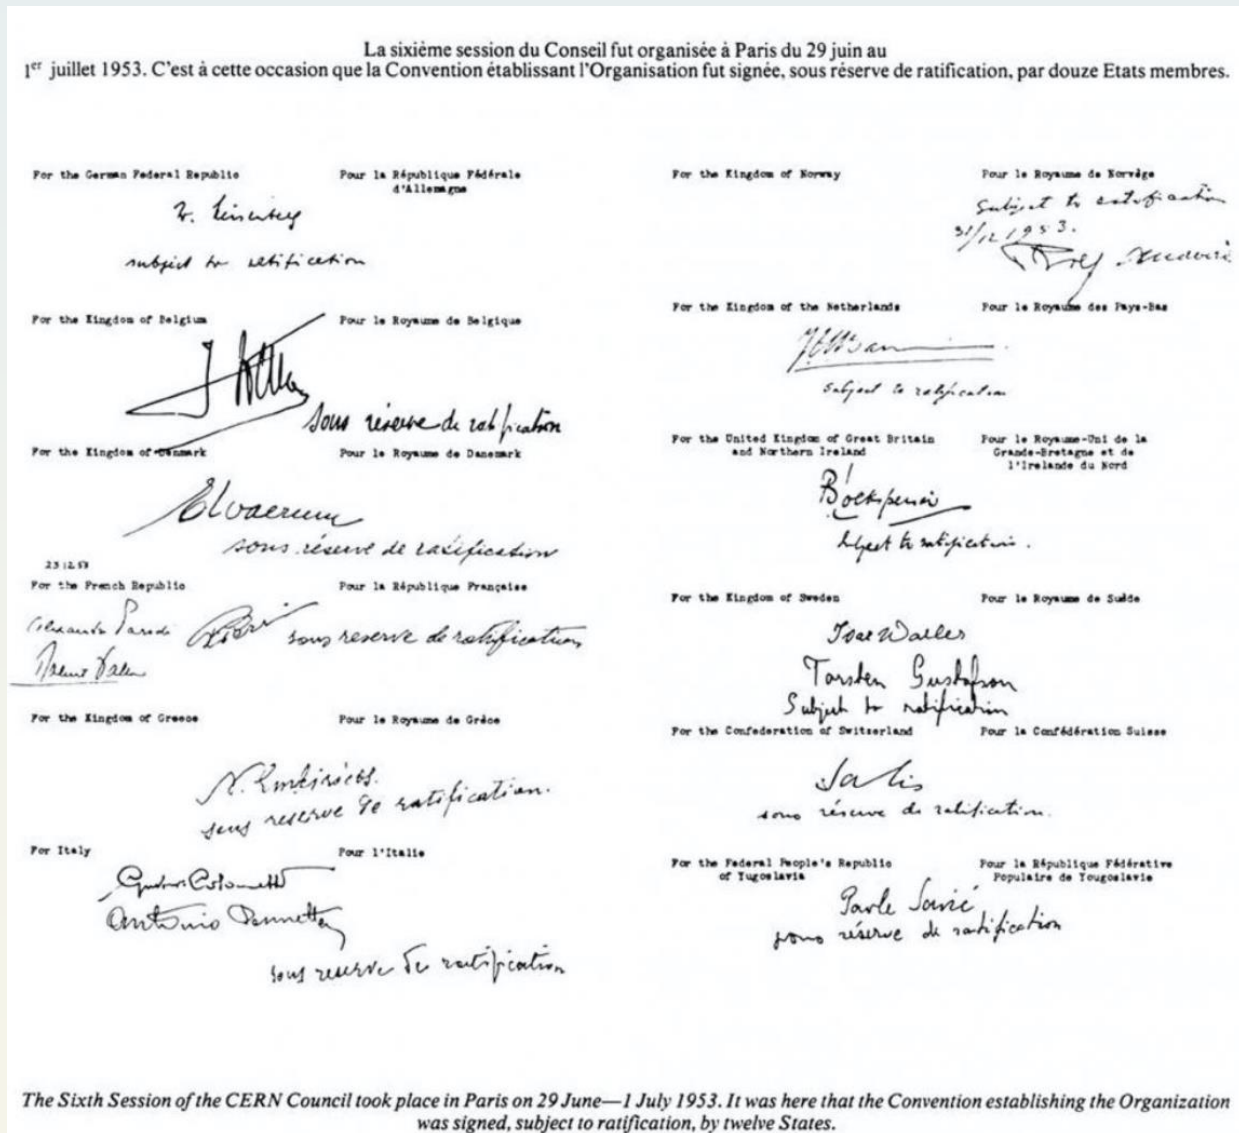 La sixième session du Conseil fut organisée à Paris du 29 juin au
1er juillet 1953. C'est à cette occasion que la Convention établissant l'Organisation fut signée, sous réserve de ratification, par douze Etats membres.
For the German Federal Republic
Pour la République Fédérale
d'Allemagne
subject to ratification
For the Kingdom of Belgium
Pour le Royaume de Belgique
sous réserve de ratification
For the Kingdom of Denmark
Pour le Royaume de Danemark
sous réserve de ratification
23 12 53
For the French Republic
Pour la République Française
Alexandre Parodi
sous reserve de ratification
For the Kingdom of Greece
Pour le Royaume de Grèce
sous reserve de ratification.
For Italy
Pour l'Italie
Antonio
sous reserve de ratification
For the Kingdom of Norway
Pour le Royaume de Norvège
Subject to ratification
31/12 1953.
For the Kingdom of the Netherlands
Pour le Royaume des Pays-Bas
subject to ratification
For the United Kingdom of Great Britain
and Northern Ireland
Pour le Royaume-Uni de la
Grande-Bretagne et de
l'Irelande du Nord
subject to ratification.
For the Kingdom of Sweden
Pour le Royaume de Suède
Ivar Waller
Torsten Gustafson
Subject to ratification
For the Confederation of Switzerland
Pour la Confédération Suisse
Salis
sous réserve de ratification.
For the Federal People's Republic
of Yugoslavia
Pour la République Fédérative
Populaire de Yougoslavie
Pavle Savić
sous réserve de ratification
The Sixth Session of the CERN Council took place in Paris on 29 June—1 July 1953. It was here that the Convention establishing the Organization
was signed, subject to ratification, by twelve States.